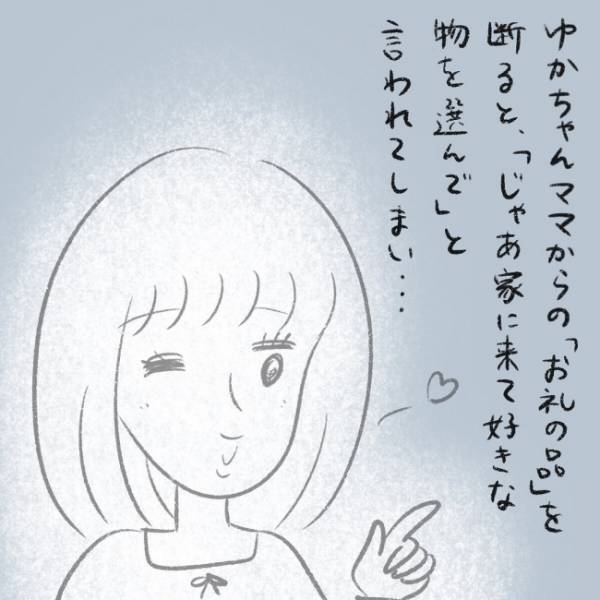 ゆかちゃんママからの「お礼の品」を
断ると、「じゃあ家に来て好きな
物を選んで」と
言われてしまい…